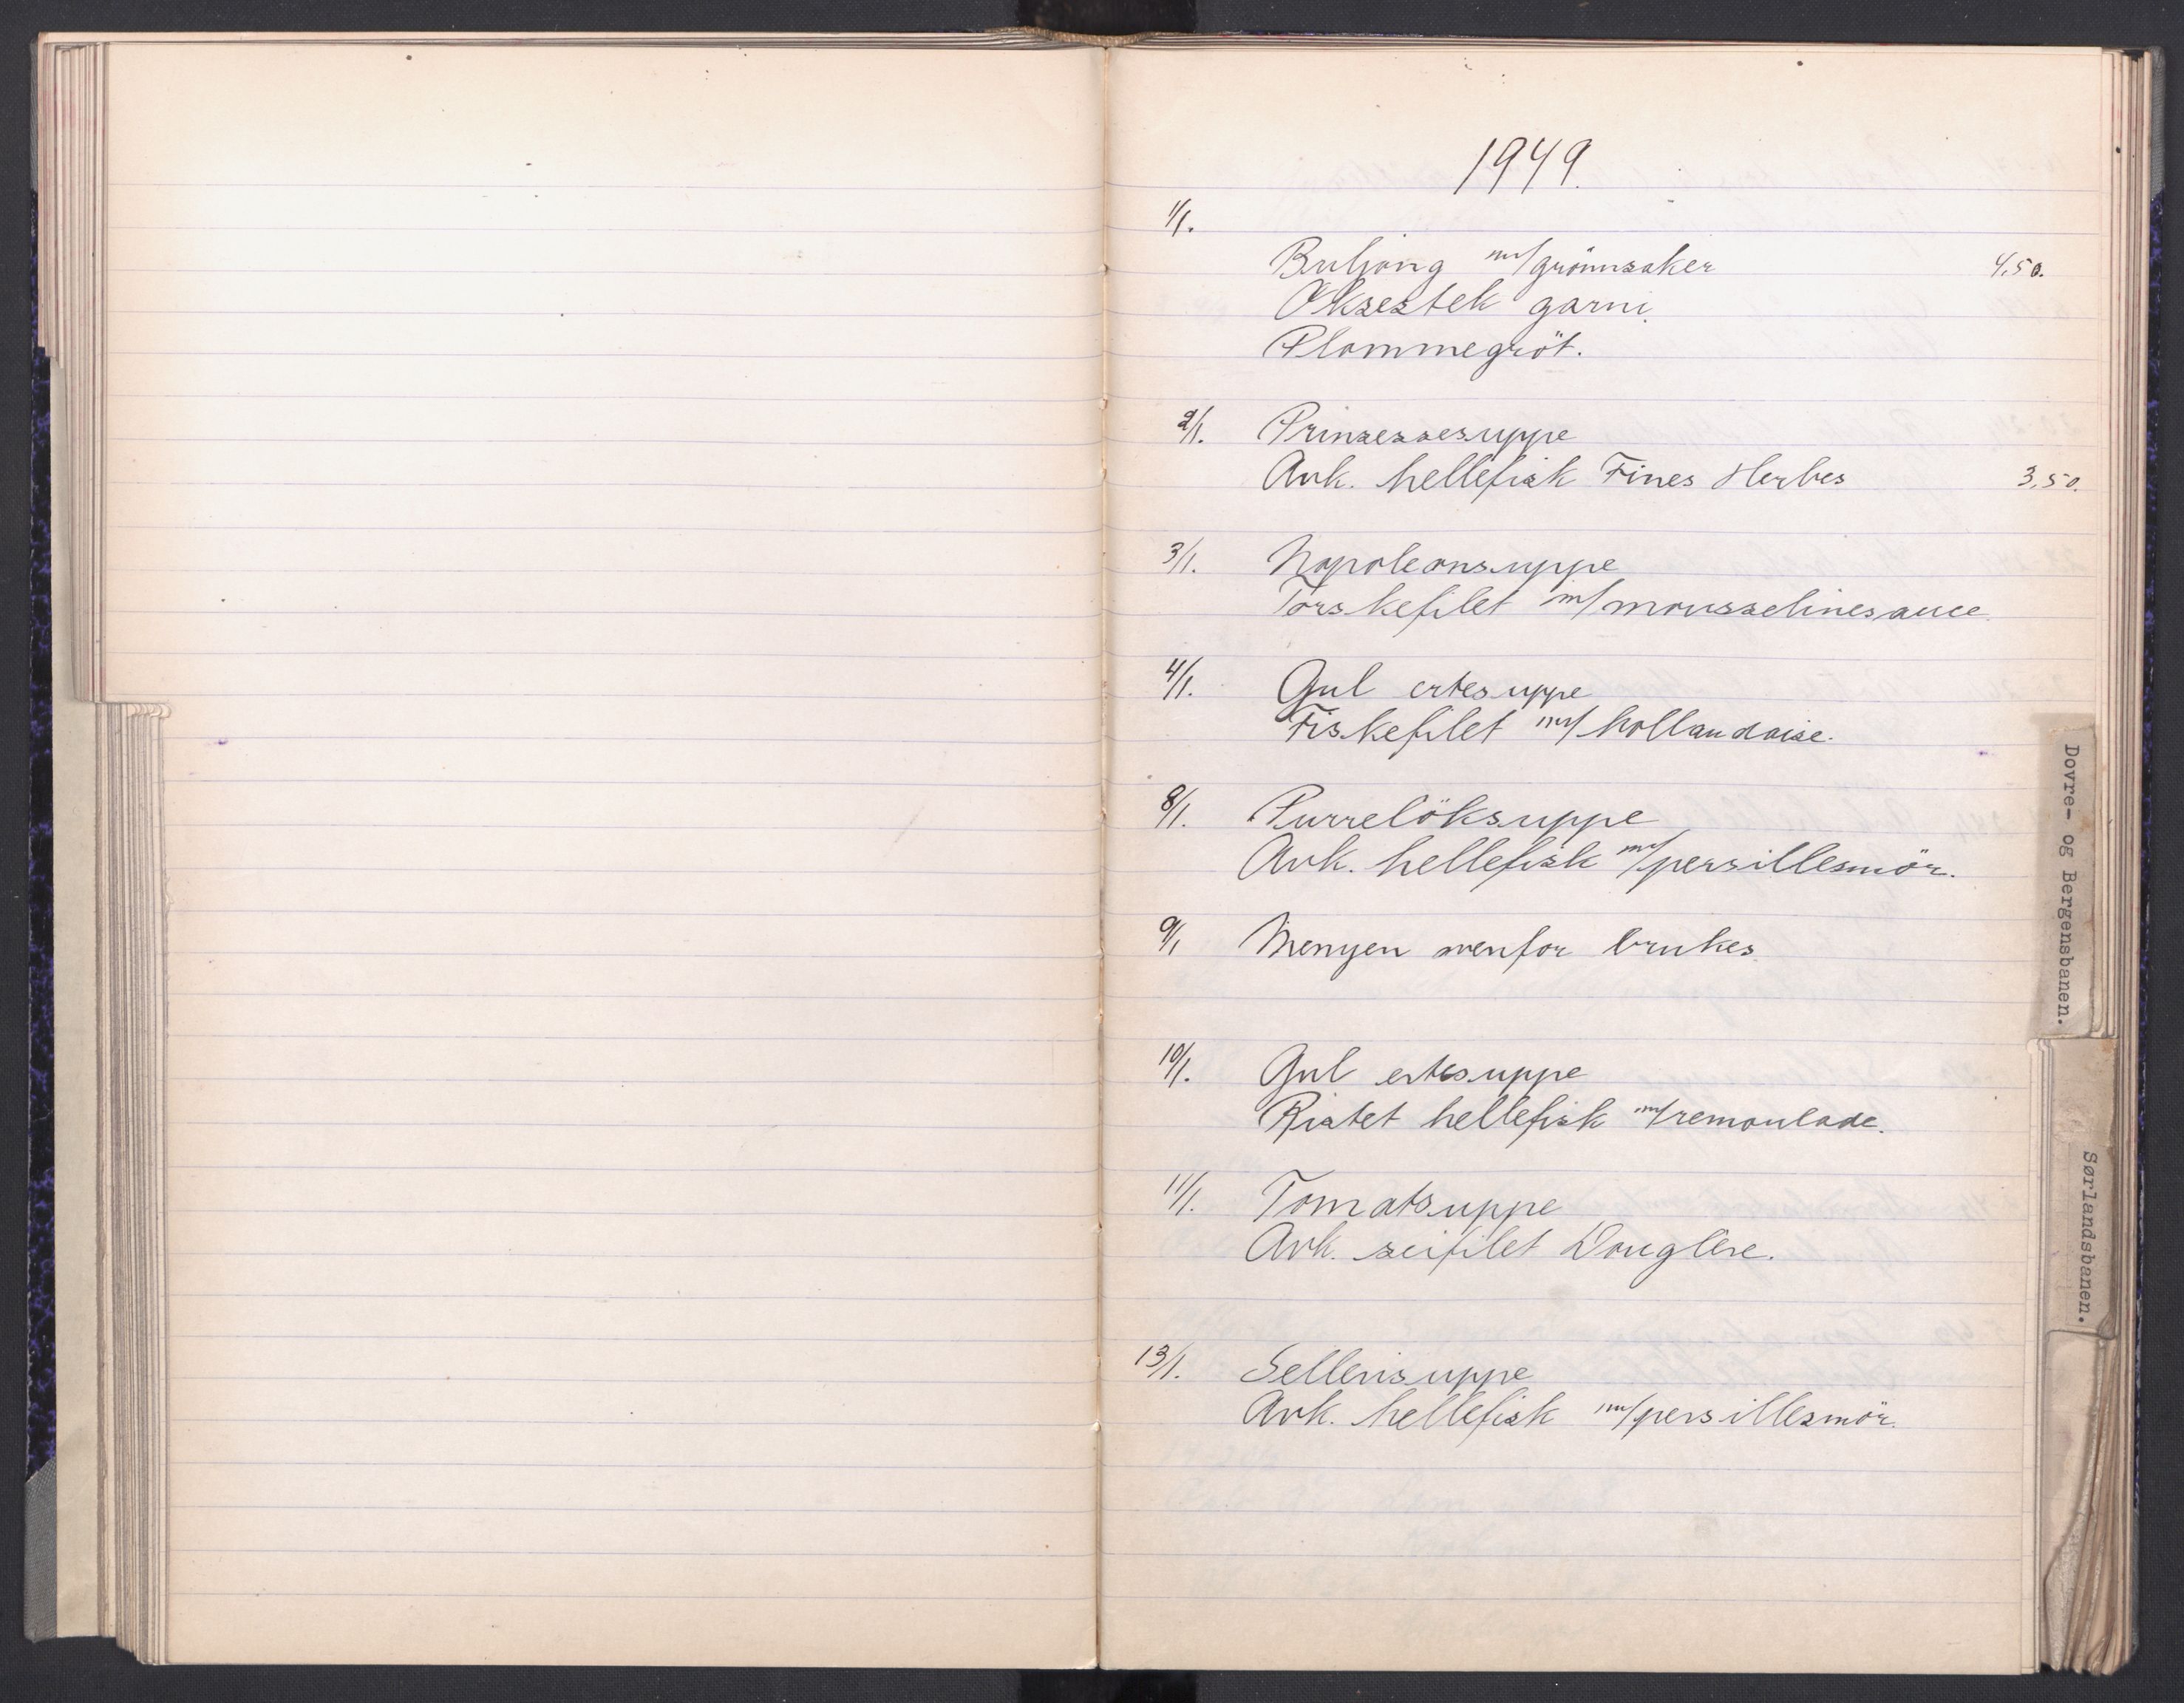 1949.
1/1.
Buljong m/grönnsaker 4,50.
Oksestek garni.
Plommegröt.
2/1. Prinsessesuppe
Avk. hellefisk Fines Herbes 3,50.
3/1. Napoleonsuppe
Torskefilet m/mousselinesauce.
4/1. Gul ertesuppe
Fiskefilet m/hollandaise.
8/1. Purrelöksuppe
Avk. hellefisk m/persillesmör.
9/1 Menyen ovenfor brukes.
10/1. Gul ertesuppe
Ristet hellefisk m/remoulade.
11/1. Tomatsuppe
Avk. seifilet Douglère.
13/1. Sellerisuppe
Avk. hellefisk m/persillesmör.
Dovre- og Bergensbanen.
Sørlandsbanen.